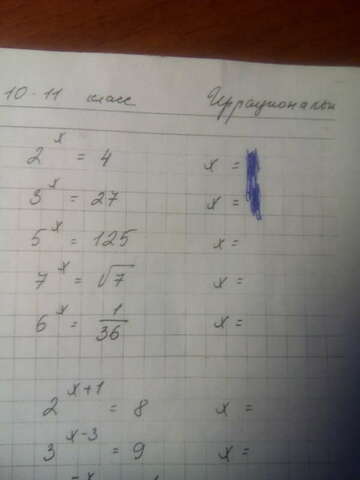 10-11 класс Иррациональн
2^x = 4 x =
3^x = 27 x =
5^x = 125 x =
7^x = √7 x =
6^x = 1/36 x =
2^{x+1} = 8 x =
3^{x-3} = 9 x =